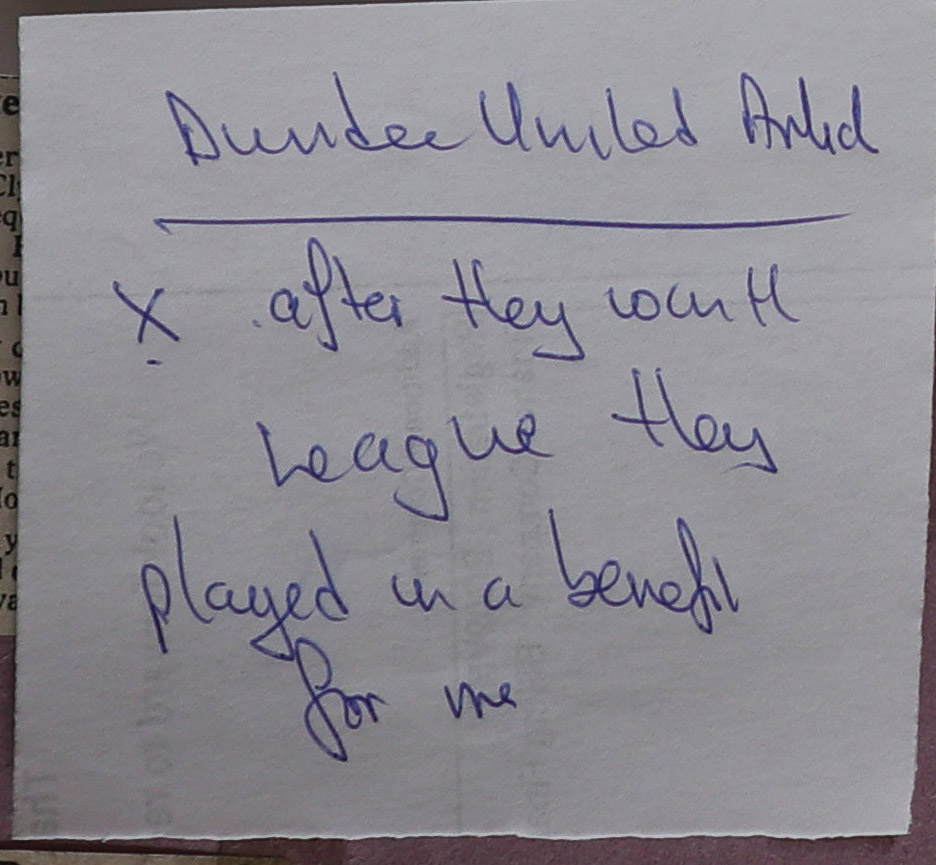 Dundee United
X after they won the
League they
played in a benefit
for me